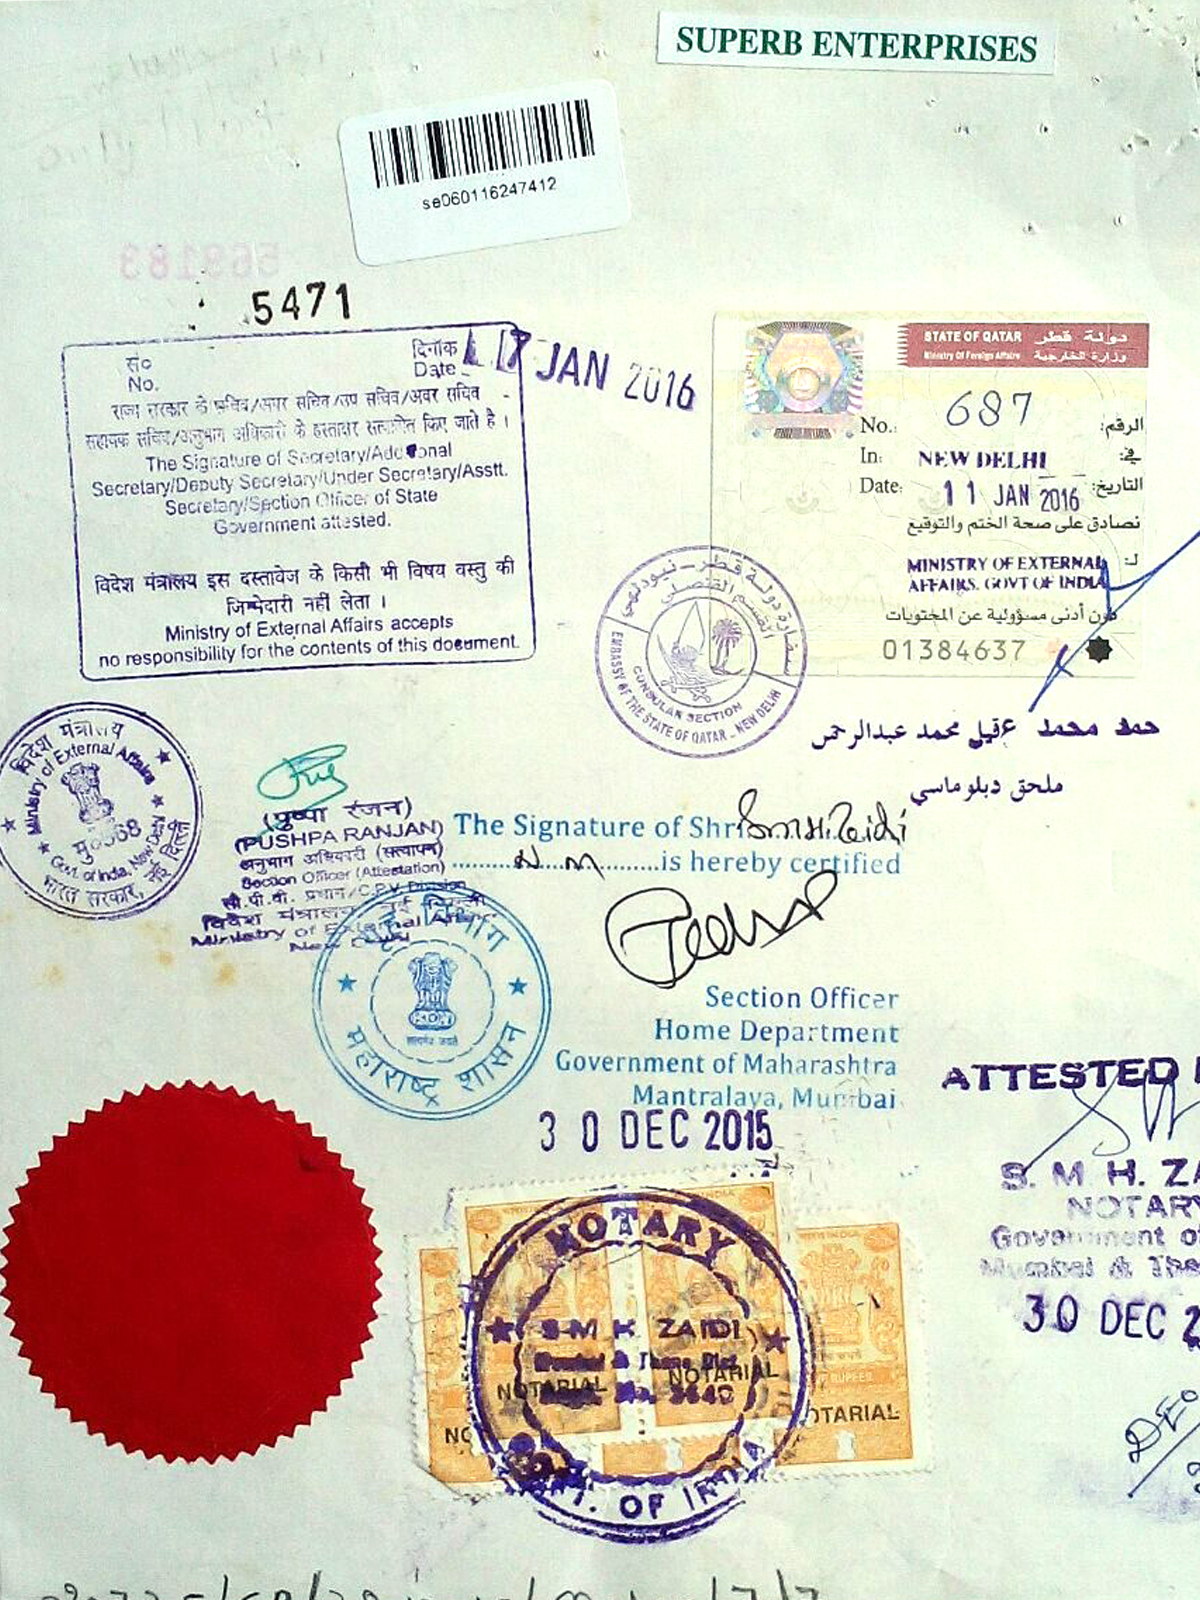 SUPERB ENTERPRISES
se060116247412
569183
5471
सं०
No.
दिनांक
Date
JAN 2016
राज्य सरकार के सचिव/अपर सचिव/उप सचिव/अवर सचिव
सहायक सचिव/अनुभाग अधिकारी के हस्ताक्षर सत्यापित किए जाते है ।
The Signature of Secretary/Additional
Secretary/Deputy Secretary/Under Secretary/Asstt.
Secretary/Section Officer of State
Government attested.
विदेश मंत्रालय इस दस्तावेज के किसी भी विषय वस्तु की
जिम्मेदारी नहीं लेता ।
Ministry of External Affairs accepts
no responsibility for the contents of this document.
STATE OF QATAR دولة قطر
Ministry Of Foreign Affairs وزارة الخارجية
No.: 687 الرقم:
In: NEW DELHI في:
Date: 11 JAN 2016 التاريخ:
نصادق على صحة الختم والتوقيع
MINISTRY OF EXTERNAL لـ:
AFFAIRS. GOVT OF INDIA
دون أدنى مسؤولية عن المحتويات
01384637
سفارة دولة قطر - نيودلهي
القسم القنصلي
CONSULAR SECTION
EMBASSY OF THE STATE OF QATAR - NEW DELHI
حمد محمد عقيل محمد عبدالرحمن
ملحق دبلوماسي
विदेश मंत्रालय
Ministry of External Affairs
Govt. of India, New Delhi
भारत सरकार, नई दिल्ली
(पुष्पा रंजन)
(PUSHPA RANJAN)
अनुभाग अधिकारी (सत्यापन)
Section Officer (Attestation)
सी.पी.वी. प्रभाग/C.P.V. Division
विदेश मंत्रालय, नई दिल्ली
Ministry of External Affairs
New Delhi
The Signature of Shri S.M.H. Zaidi
is hereby certified
गृह विभाग
महाराष्ट्र शासन
Section Officer
Home Department
Government of Maharashtra
Mantralaya, Mumbai
30 DEC 2015
ATTESTED
S. M. H. ZA
NOTARY
Government of
Mumbai & Tha
30 DEC 2
NOTARY
S M H ZAIDI
NOTARIAL
NOTARIAL
OTARIAL
OF INDIA